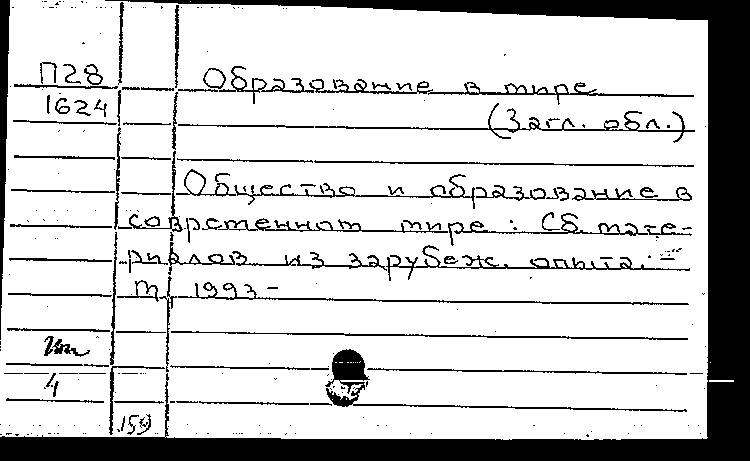 П28 Образование в мире
1624 (Загл. обл.)
Общество и образование в
современном мире : Сб. мате-
риалов из зарубеж. опыта. –
М., 1993 –
4
159